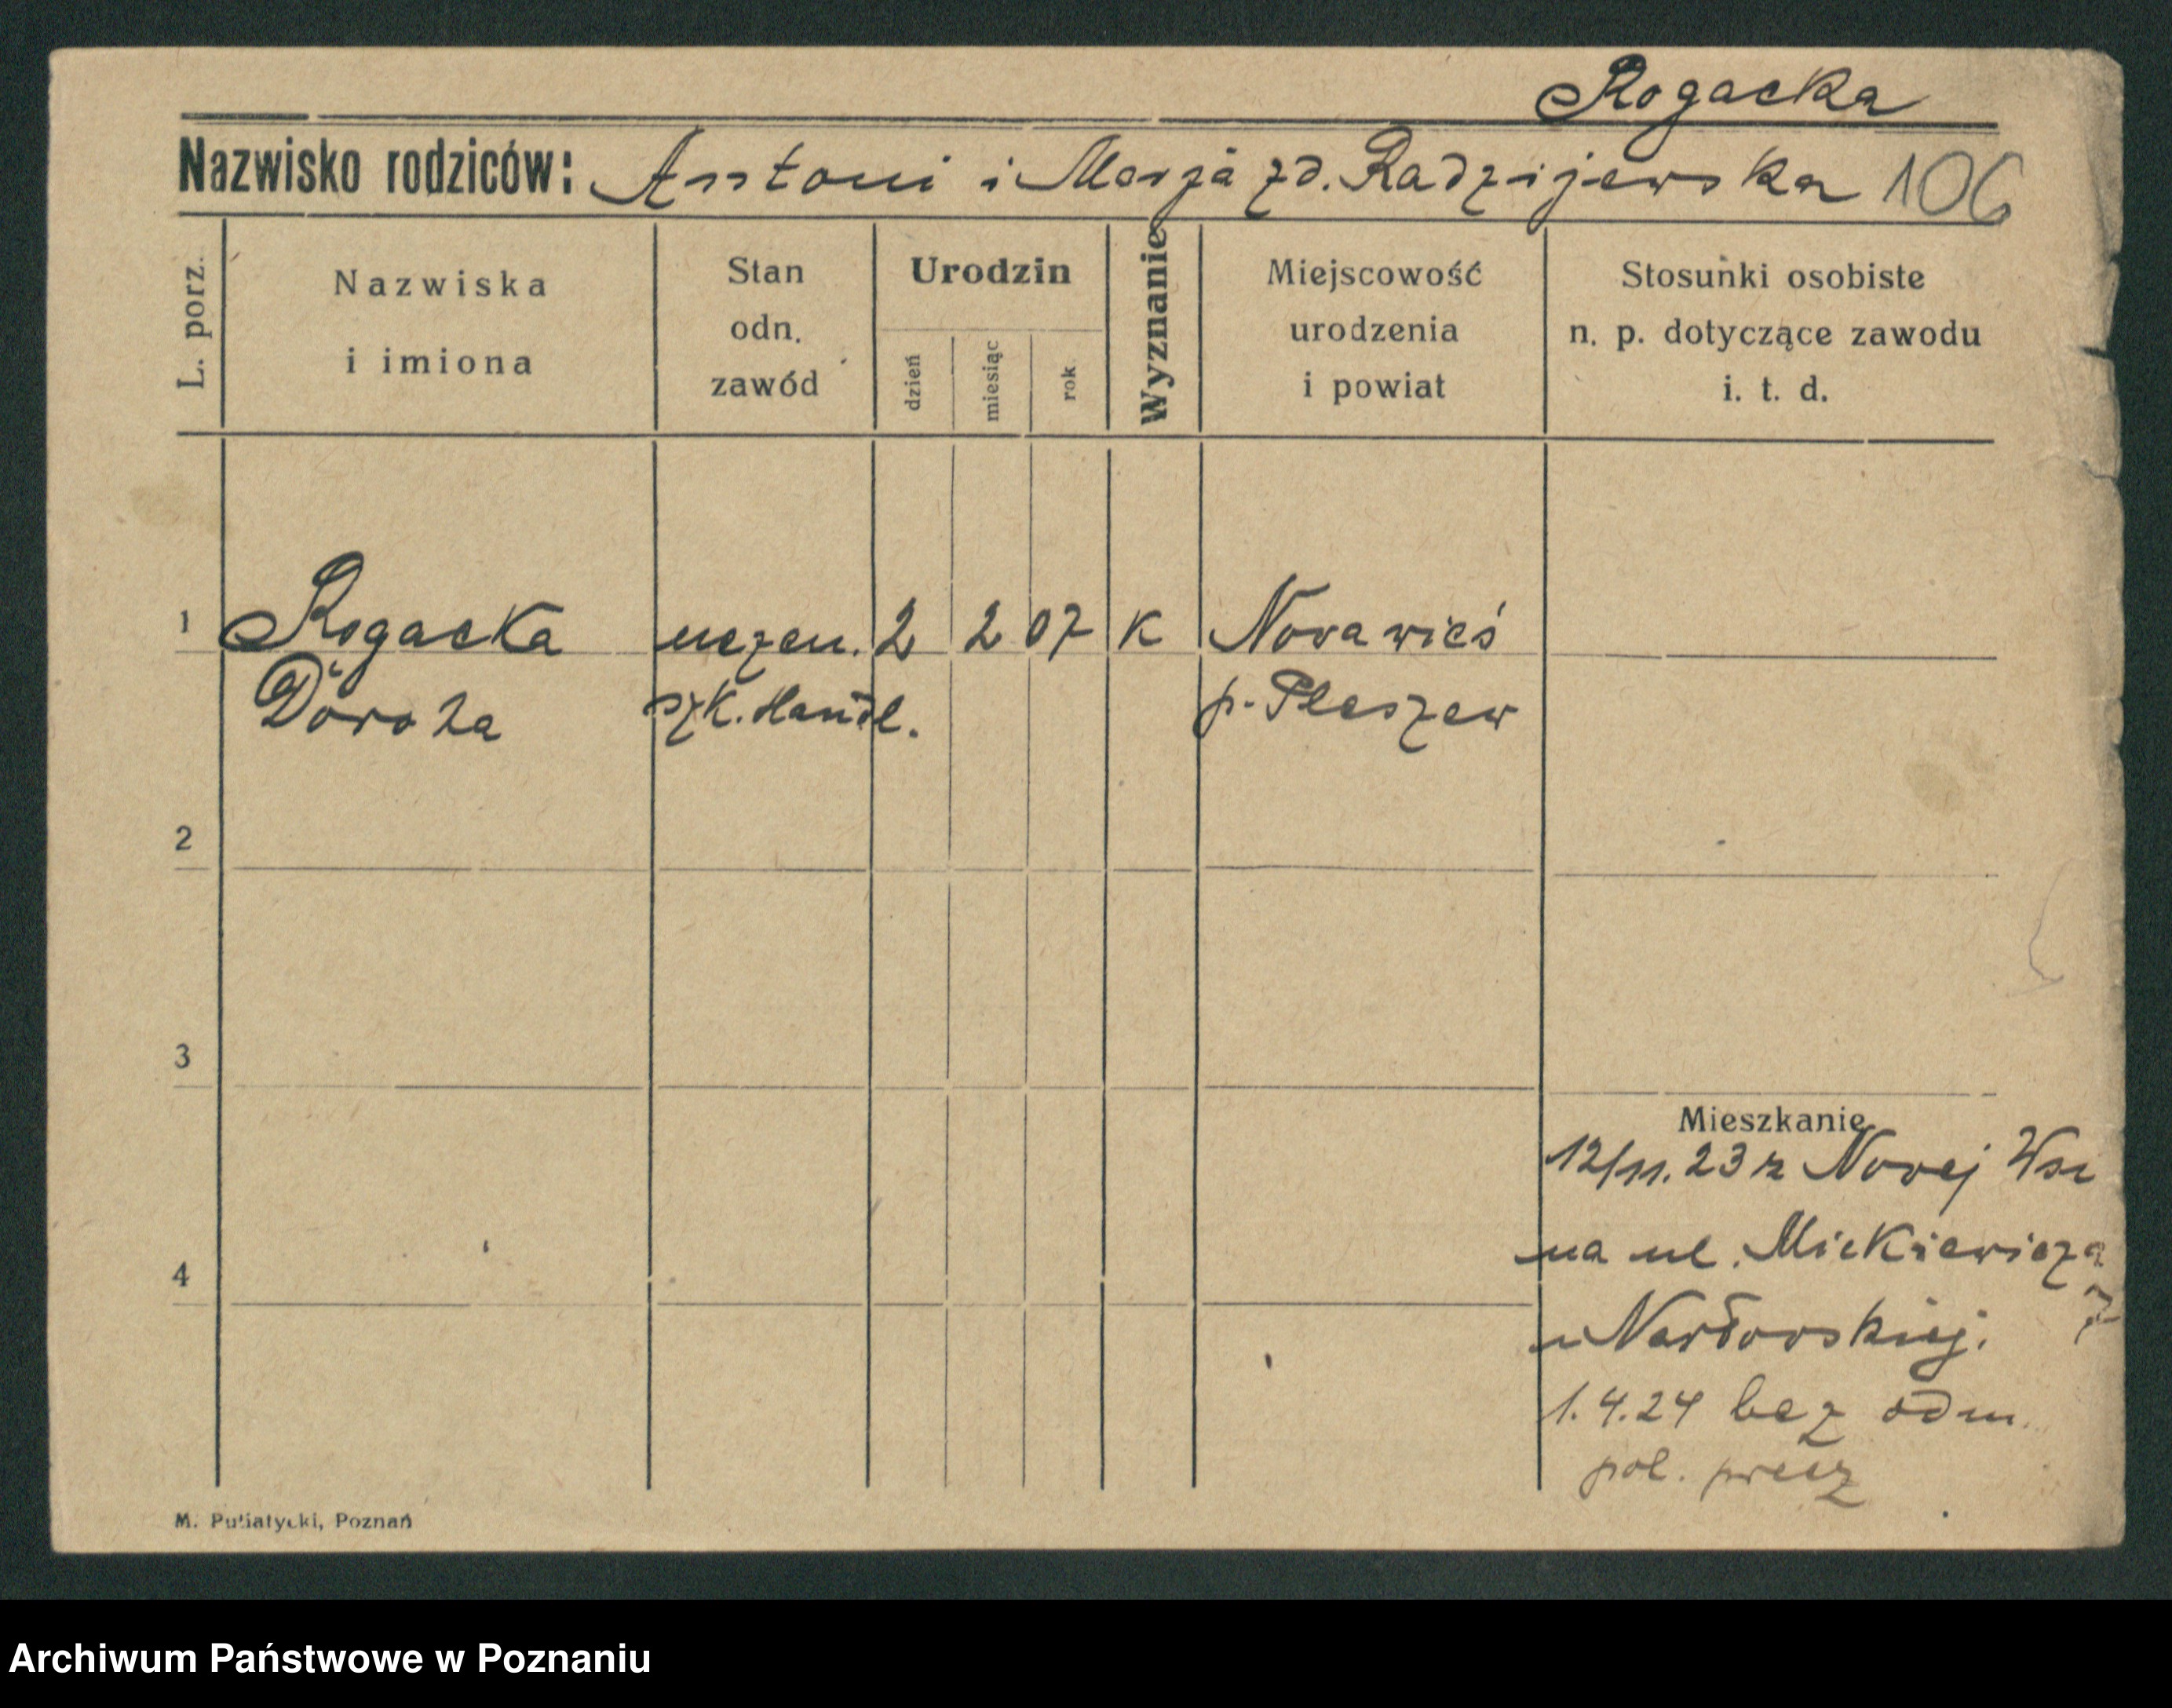 Rogacka
Nazwisko rodziców: Antoni i Marja zd. Radzijewska 106
L. porz.
Nazwiska
i imiona
Stan
odn.
zawód
Urodzin
dzień
miesiąc
rok
Wyznanie
Miejscowość
urodzenia
i powiat
Stosunki osobiste
n. p. dotyczące zawodu
i. t. d.
1 Rogacka uczen. 2 2 07 K Nowawieś
Dorota szk. Handl. p. Pleszew
2
3
Mieszkanie
12/11. 23 z Nowej Wsi
na ul. Mickiewicza
7
4
u
1.4.24 bez odm.
pol. precz
M. Putiatycki, Poznań
Archiwum Państwowe w Poznaniu